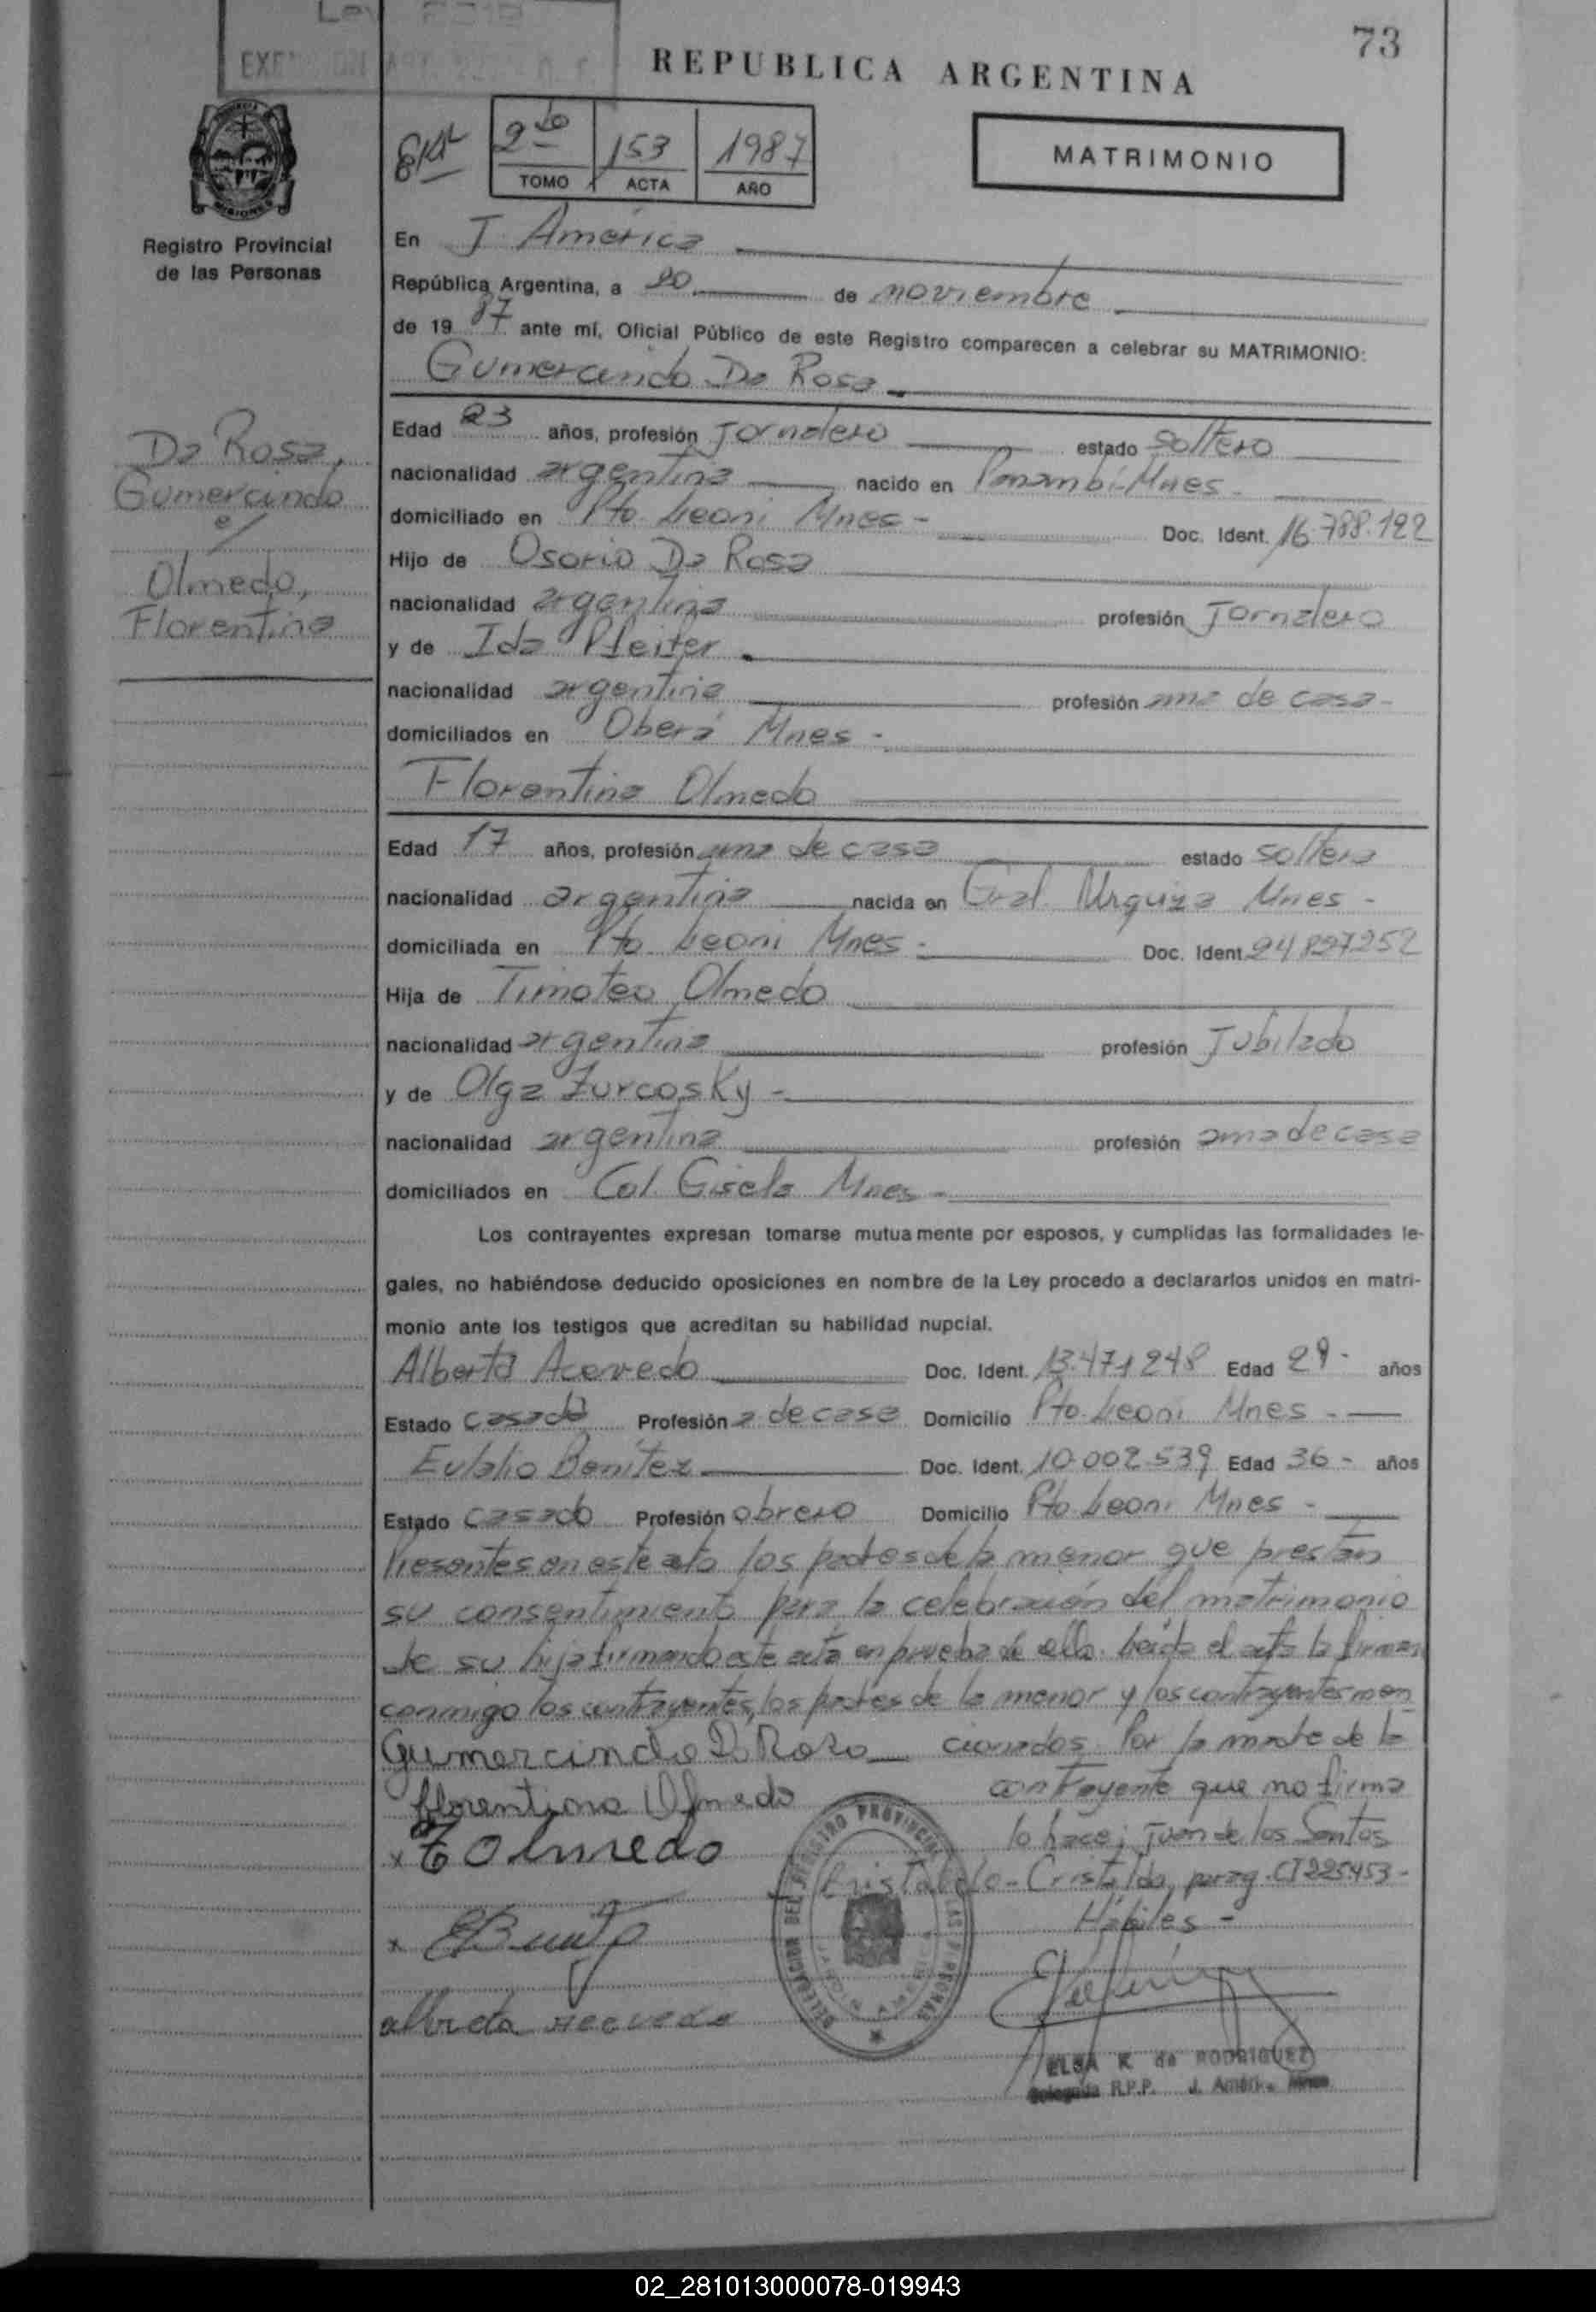 73
REPUBLICA ARGENTINA
2do 153 1987
TOMO ACTA AÑO
MATRIMONIO
MISIONES
Registro Provincial
de las Personas
En J. América
República Argentina, a 20 de noviembre
de 1987 ante mí, Oficial Público de este Registro comparecen a celebrar su MATRIMONIO:
Gumercindo Da Rosa
Da Rosa,
Gumercindo
c/
Olmedo,
Florentina
Edad 23 años, profesión Jornalero estado soltero
nacionalidad argentina nacido en Panambí-Mnes-
domiciliado en Pto. Leoni Mnes- Doc. Ident. 16.788.122
Hijo de Osorio Da Rosa
nacionalidad argentina profesión Jornalero
y de Ida Pfeifer
nacionalidad argentina profesión ama de casa-
domiciliados en Oberá Mnes-
Florentina Olmedo
Edad 17 años, profesión ama de casa estado soltera
nacionalidad argentina nacida en Gral. Urquiza Mnes-
domiciliada en Pto. Leoni Mnes- Doc. Ident. 24827252
Hija de Timoteo Olmedo
nacionalidad argentina profesión Jubilado
y de Olga Zurcosky-
nacionalidad argentina profesión ama de casa
domiciliados en Col. Gisela Mnes-
Los contrayentes expresan tomarse mutuamente por esposos, y cumplidas las formalidades le-
gales, no habiéndose deducido oposiciones en nombre de la Ley procedo a declararlos unidos en matri-
monio ante los testigos que acreditan su habilidad nupcial.
Alberta Acevedo Doc. Ident. 13.471248 Edad 29- años
Estado casada Profesión a de casa Domicilio Pto. Leoni Mnes-
Eulalio Benitez Doc. Ident. 10.002.539 Edad 36- años
Estado casado Profesión obrero Domicilio Pto. Leoni Mnes-
Presentes en este acto los padres de la menor que prestan
su consentimiento para la celebración del matrimonio
de su hija firmando este acta en prueba de ello. Leida el acta la firman
conmigo los contrayentes, los padres de la menor y los contrayentes men
cionados. Por la madre de la
Gumercindo D Rosa
contrayente que no firma
florentina Olmedo
lo hace; Juan de los Santos
T Olmedo
Cristaldo- Cristaldo, parag. CI 225.453-
Hábiles-
EBenitez
alberta acevedo
DELEGACION DEL REGISTRO PROVINCIAL DE LAS PERSONAS
ELSA K. de RODRIGUEZ
Delegada R.P.P. J. América Mnes
02_281013000078-019943